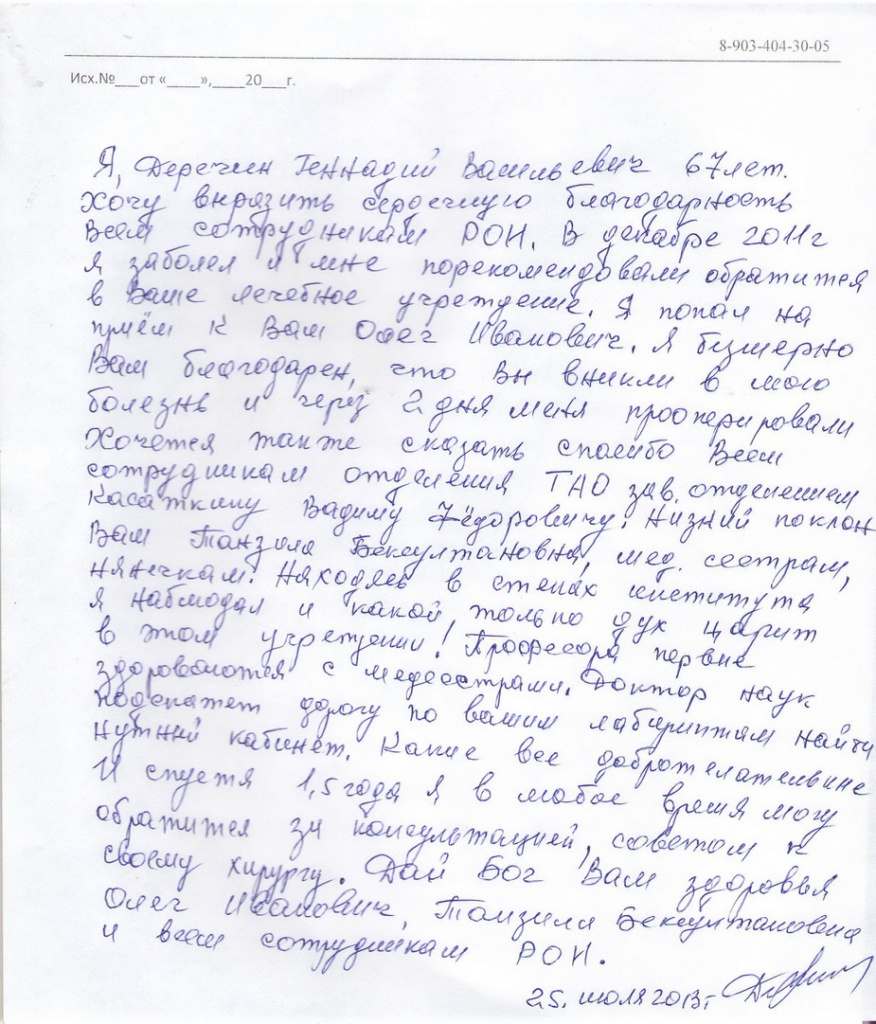 8-903-404-30-05
Исх.№___от «____»,____20___г.
Я, Деречин Геннадий Васильевич 67лет.
Хочу выразить сердечную благодарность
Всем сотрудникам РОНИ. В декабре 2011г
я заболел и мне порекомендовали обратится
в Ваше лечебное учреждение. Я попал на
приём к Вам Олег Иванович. Я безмерно
Вам благодарен, что Вы вникли в мою
болезнь и через 2 дня меня прооперировали
Хочется также сказать спасибо Всем
сотрудникам отделения ТАО зав. отделением
Касаткину Вадиму Фёдоровичу. Низкий поклон
Вам Танзила Бексултановна, мед. сестрам,
нянечкам. Находясь в стенах института
я наблюдал и какой, только дух царит
в этом учреждении! Професора первые
здороваются с медсестрами. Доктор наук
подскажет дорогу по вашим лабиринтам найти
нужный кабинет. Какие все доброжелательные
И спустя 1,5 года я в любое время могу
обратится за консультацией, советом к
своему хирургу. Дай Бог Вам здоровья
Олег Иванович, Танзила Бексултановна
и всем сотрудникам РОНИ.
25. июля 2013г